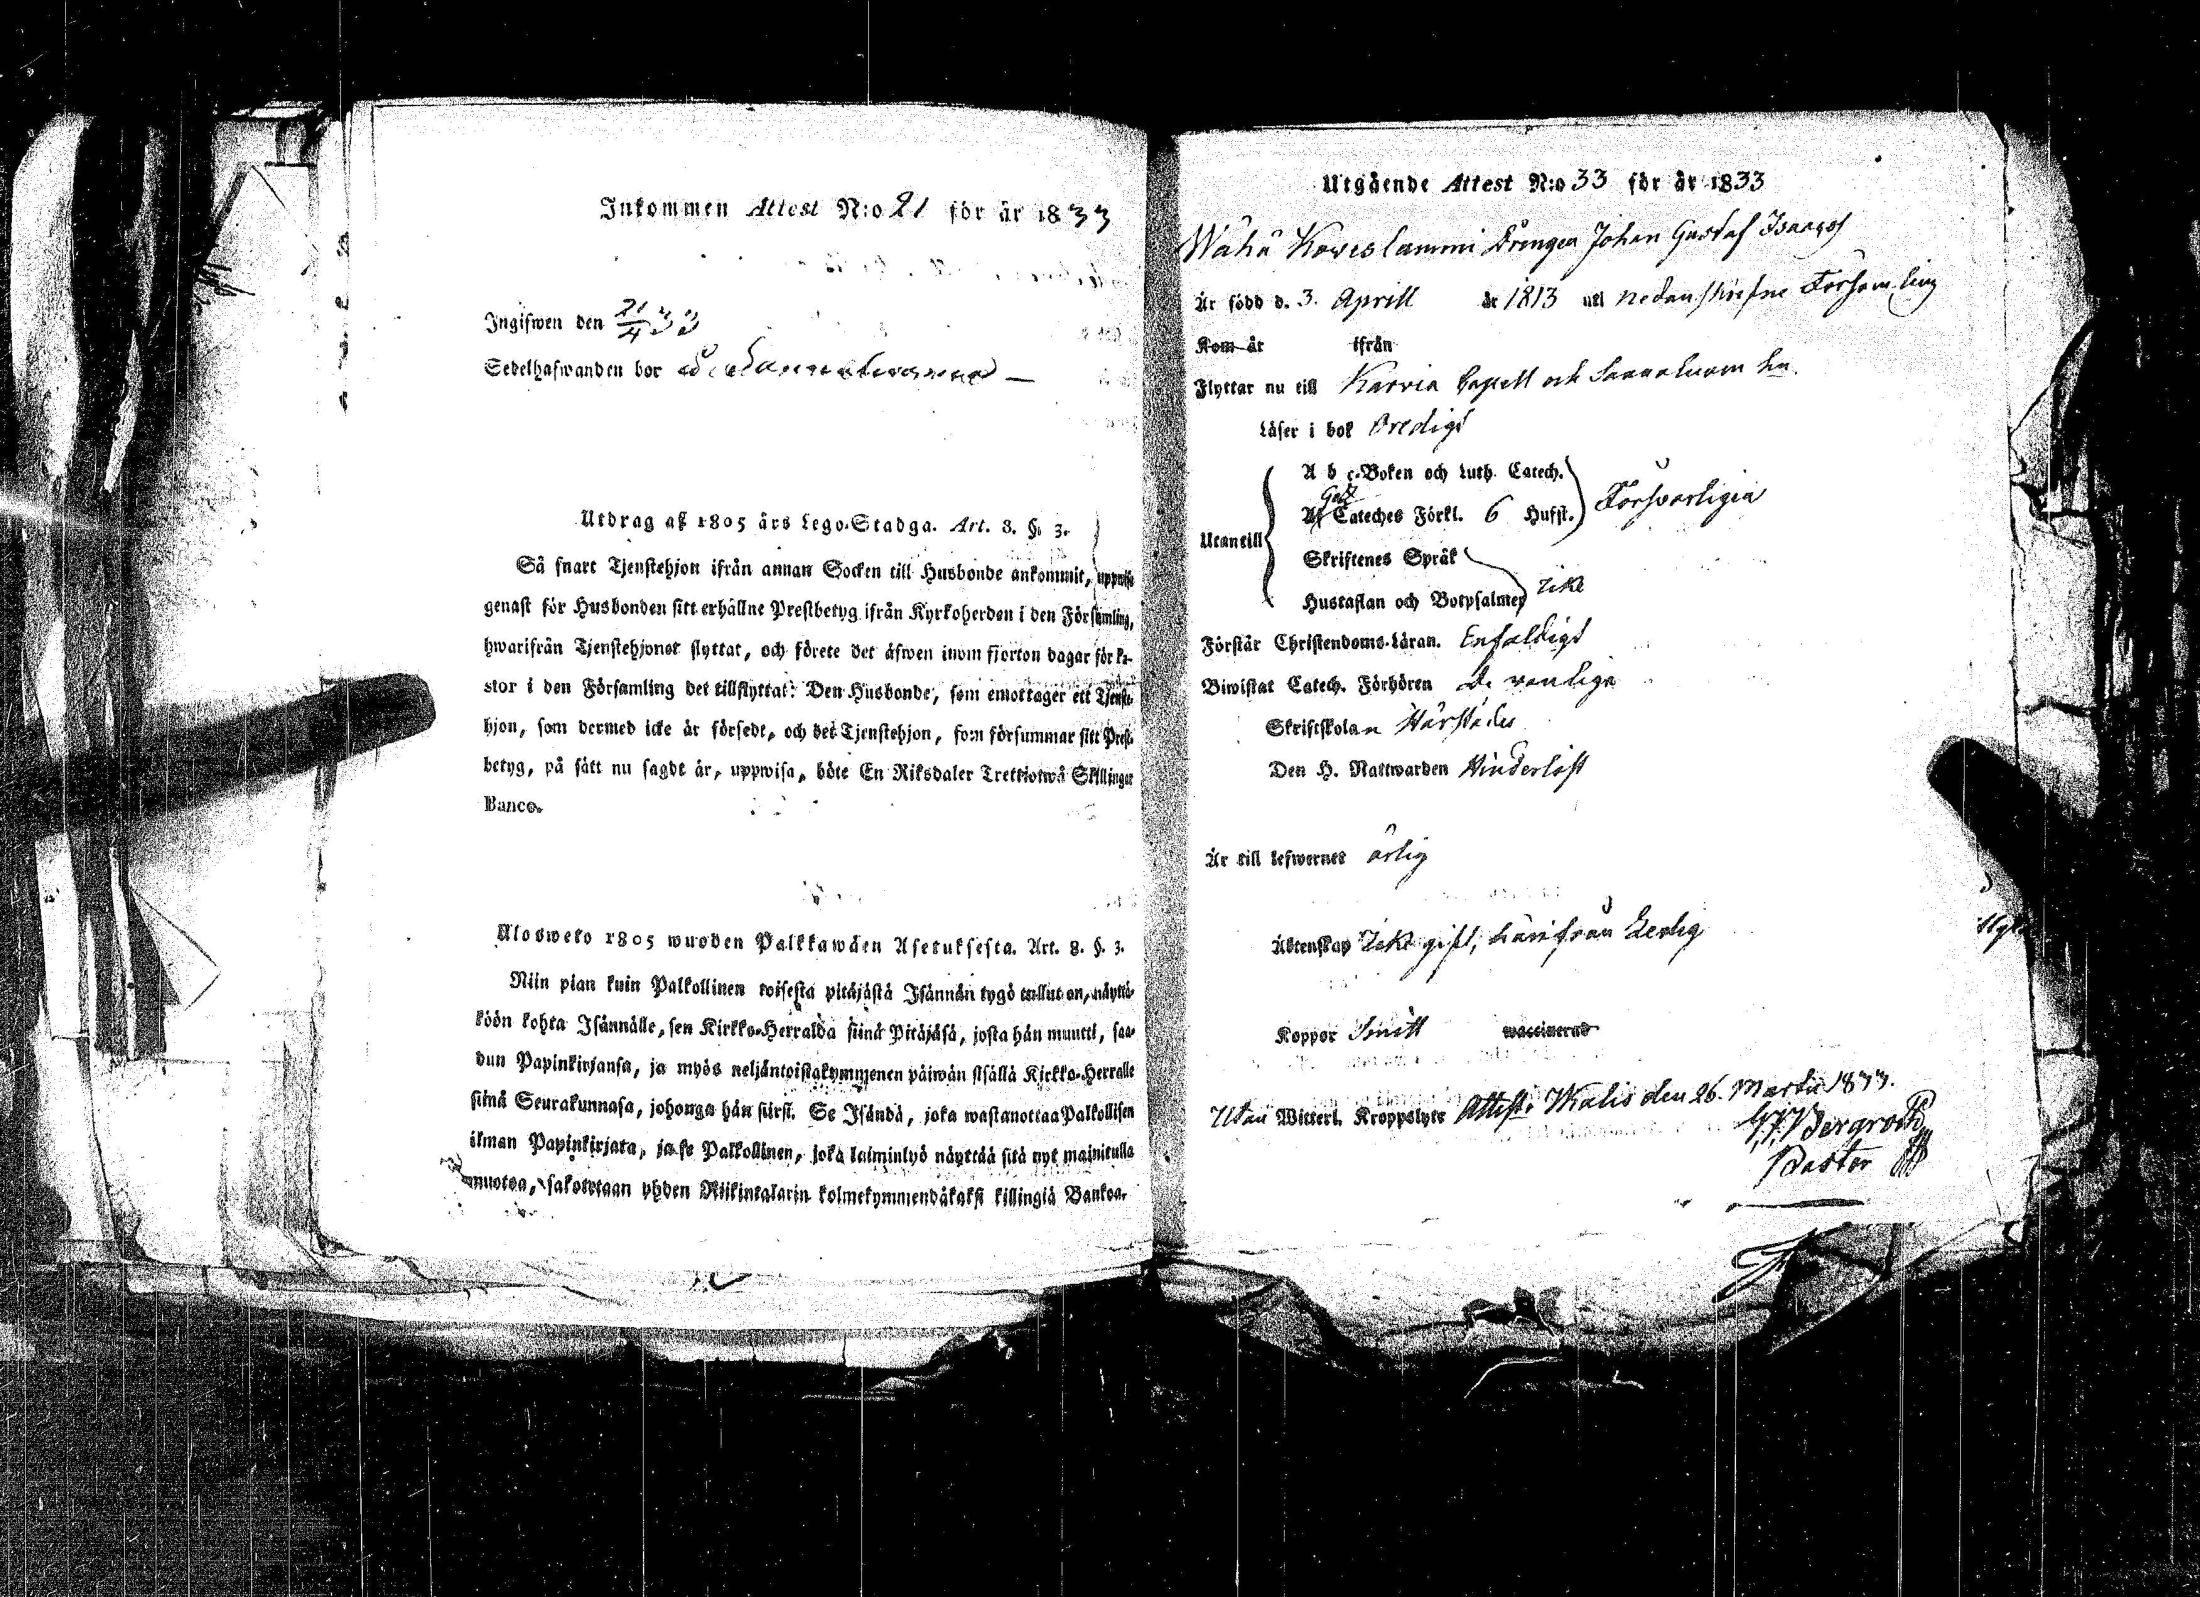 Inkommen Attest N:o 21 för är 1833
Ingifwen den 21/4 33
Sedelhafwanden bor å Sannaluoma
Utdrag af 1805 års Lego-Stadga. Art. 8. §. 3.
Så snart Tjenstehjon ifrån annan Socken till Husbonde ankommit, uppwise
genast för Husbonden sitt erhållne Prestbetyg ifrån Kyrkoherden i den Församling,
hwarifrån Tjenstehjonet flyttat, och förete det äfwen inom fjorton dagar för Pa-
stor i den Församling det tillflyttat: Den Husbonde, som emottager ett Tjenste-
hjon, som dermed icke är försedt, och det Tjenstehjon, som försummar sitt Prest-
betyg, på sätt nu sagdt är, uppwisa, böte En Riksdaler Trettiotwå Skillingar
Banco.
Ulosweto 1805 wuoden Palkkawäen Asetuksesta. Art. 8. §. 3.
Niin pian kuin Palkollinen toisesta pitäjästä Isännän tygö tullut on, näyttä-
köön kohta Isännälle, sen Kirkko-Herralda siinä Pitäjäsä, josta hän muutti, saa-
dun Papinkirjansa, ja myös neljäntoistakymmenen päiwän sisällä Kirkko-Herralle
siinä Seurakunnasa, johonga hän siirsi. Se Isändä, joka wastanottaa Palkollisen
ilman Papinkirjata, ja se Palkollinen, joka laiminlyö näyttää sitä nyt mainitulla
muotoa, sakotetaan yhden Riikintalarin kolmekymmendäkaksi killingiä Bankoa.
Utgående Attest N:o 33 för år 1833
Wähä Koweslammi Drengen Johan Gustaf Isaacss
Är född d. 3. Aprill år 1813 uti nedanskrefne Församling
Kom år ifrån
Flyttar nu till Karvia Capell och Sannaluom hn.
Läser i bok Oredigt
Utantill
A b c-Boken och Luth. Catech.
Af Cateches Förkl. 6 Hufst. Försvarligen
Skriftenes Språk
Hustaflan och Botpsalmer Icke
Förstår Christendoms-Läran. Enfaldigt
Biwistat Catech. Förhören De vanliga
Skriftskolan Härstädes
Den H. Nattwarden Hinderlöst
Är till lefwernet ärlig
Äktenskap Icke gift, härifrån Ledig
Koppor Smitt waccinerad
Utan Witterl. Kroppslyte Attest: Ikalis den 26. Martii 1833.
Bergroth
Pastor